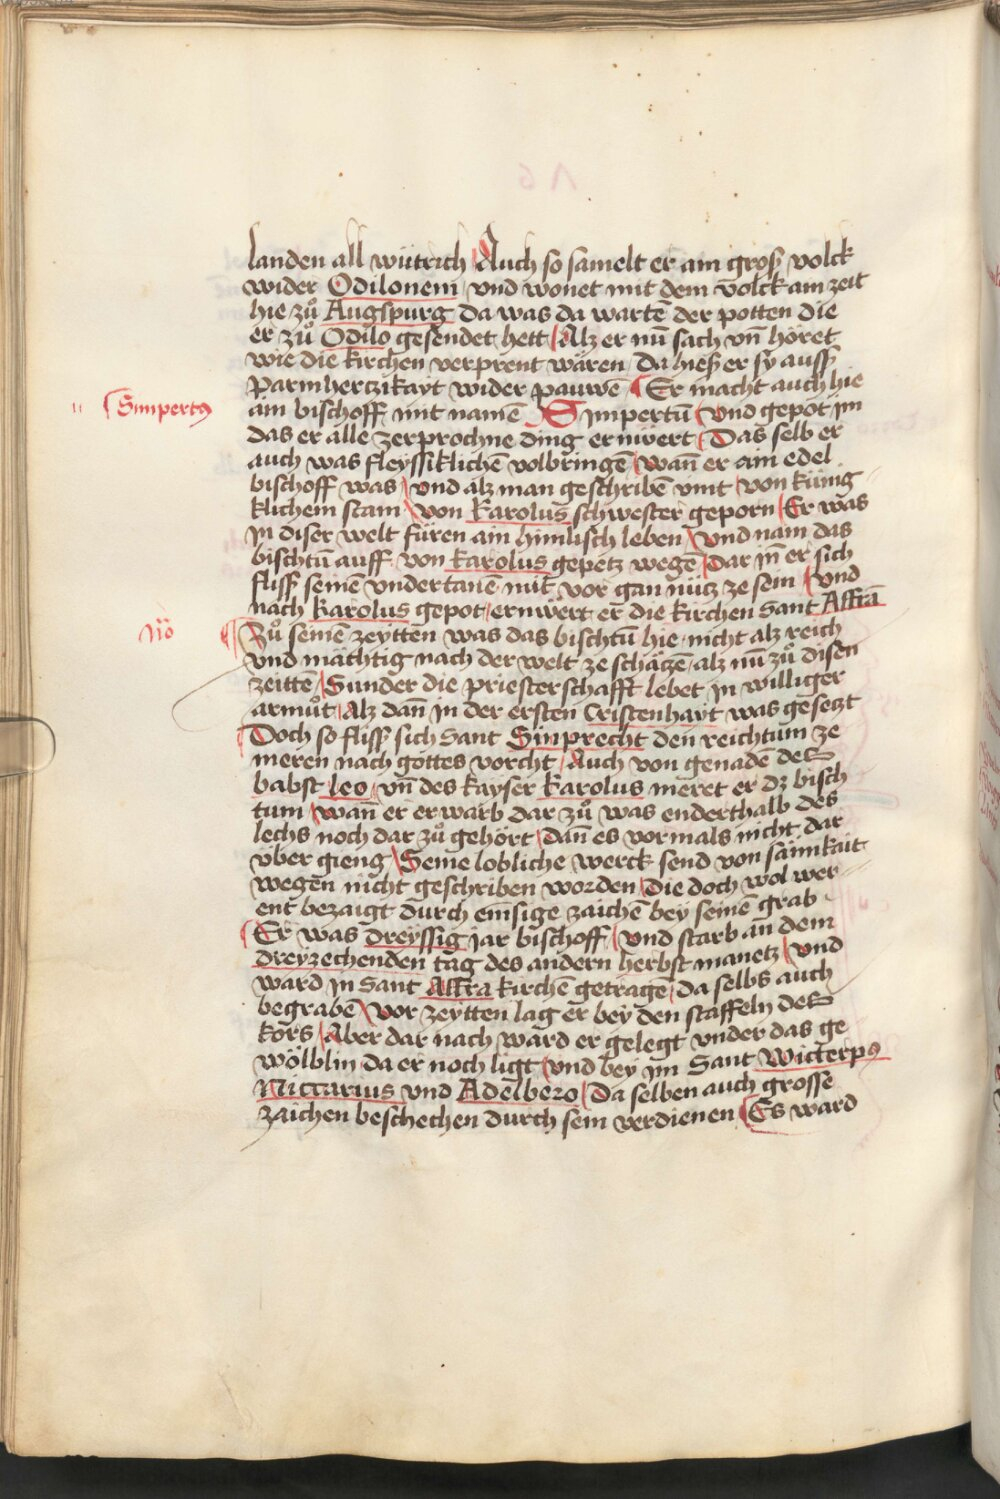 landen all wütrich Auch so samelt er ain groß volck
wider Odilonem und wonet mit dem volck ain zeit
hie zů Augspurg da was da wartē der potten die
er zů Odilo gesendet hett Alz er nū sach vn̄ höret
wie die kirchen verprent wären Da hieß er sy auss
Parmhertzikayt wider pauwē Er macht auch hie
Simpertus
ain bischoff mit namē Simpertū und gepot im
das er alle zerprochne ding ernwert Das selb er
auch was fleyssiklichē volbringē wan̄ er ain edel
bischoff was und alz man geschribē vint von künig
klichem stam von karolus schwester geporn Er was
in diser welt füren ain himlisch leben und nam das
bischtū auff von karolus gepetz wegē Dar in̄ er sich
fliss seinē undertanē mit vor gan nütz ze sein und
nach karolus gepot ernwert er die kirchen Sant Affrā
No
Zů seinē zeytten was das bischtū hie nicht alz reich
vnd mächtig nach der welt ze schäczē alz nū zů disen
zeittē Sunder die priesterschafft lebet in williger
armůt Alz dan̄ in der ersten Cristenhayt was gesetzt
Doch so fliss sich Sant Simprecht den reichtum ze
meren nach gottes vorcht Auch von genadē des
babst leo vn̄ des kayser karolus meret er dz bisch
tum wan̄ er erwarb dar zů was enderthalb des
lechs noch dar zů gehört dan̄ es vormals nicht dar
über gieng Seine lobliche werck send von saimkait
wegen nicht geschriben worden die doch wol wer
ent bezaigt durch emsige zaichē bey seinē grab
Er was dreyssig jar bischoff und starb an dem
dreyzechenden tag des andern herbst manetz und
ward in Sant Affra kirchē getragē da selbs auch
begrabē vor zeytten lag er bey den staffeln des
kors Aber dar nach ward er gelegt under das ge
wölblin da er noch ligt und bey im Sant Wicterpus
Niccarius und Adelbero Da selben auch grosse
zaichen beschechen durch sein verdienen Es ward